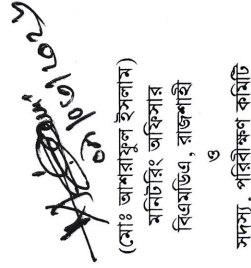 (মোঃ আশরাফুল ইসলাম)
মনিটরিং অফিসার
বিএমডিএ, রাজশাহী
ও
সদস্য, পরিবীক্ষণ কমিটি